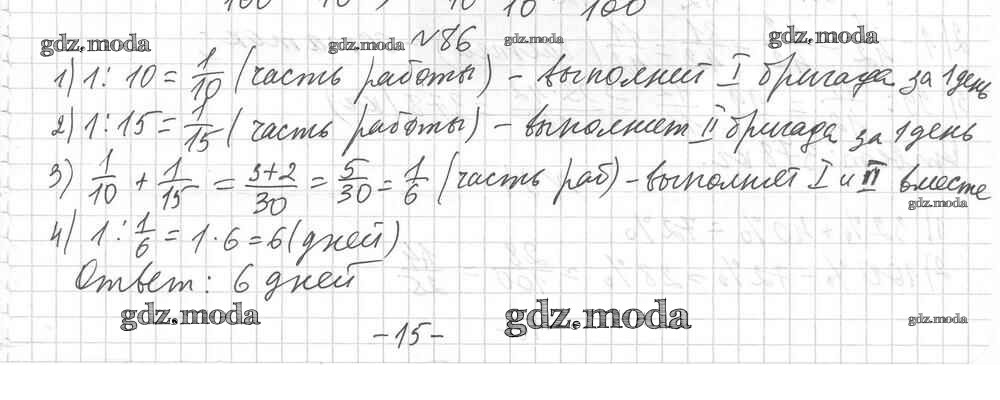 gdz.moda gdz.moda №86 gdz.moda gdz.moda
1) 1 : 10 = 1/10 (часть работы) - выполняет I бригада за 1 день
2) 1 : 15 = 1/15 (часть работы) - выполняет II бригада за 1 день
3) 1/10 + 1/15 = 3+2/30 = 5/30 = 1/6 (часть раб) - выполняет I и II вместе
gdz.moda
4) 1 : 1/6 = 1 · 6 = 6 (дней)
Ответ: 6 дней
gdz.moda gdz.moda gdz.moda
- 15 -